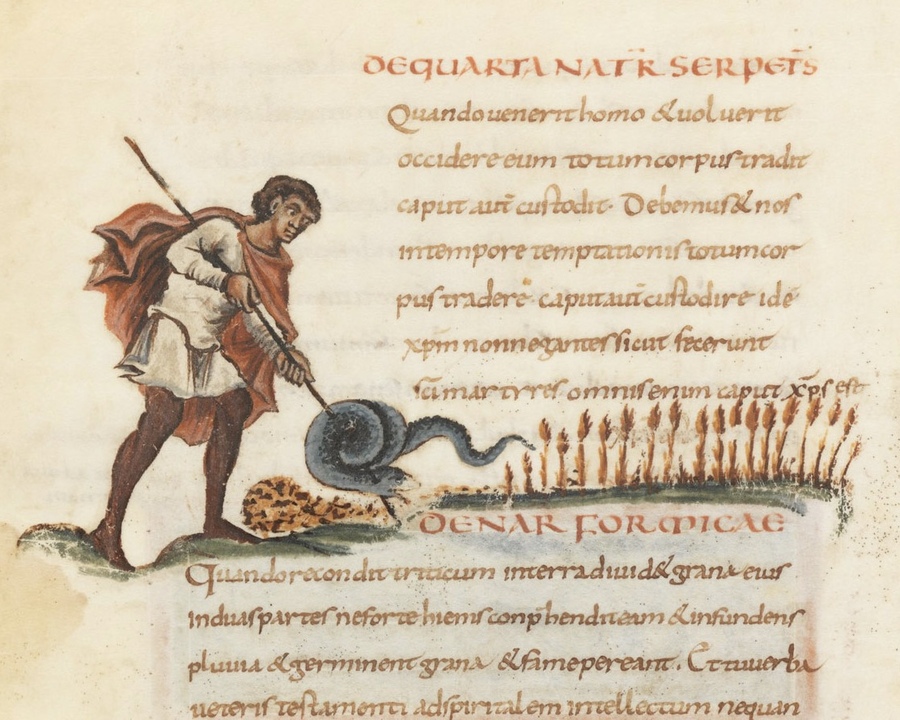 DE QUARTA NAT̄R SERPET̄S
Quando venerit homo & voluerit
occidere eum totum corpus tradit
caput aut̄ custodit. Debemus & nos
in tempore temptationis totum cor
pus tradere caput aut̄ custodire id ē
xp̄m non negantes sicut fecerunt
sc̄i martyres omnis enim caput xp̄s est
DE NAR FORMICAE
Quando recondit triticum in terra divid& grana eius
in duas partes ne forte hiems conp̄hendat eam & infundens
pluvia & germinent grana & fame pereant. Et tu verba
veteris testamenti ad spiritalem intellectum nequan